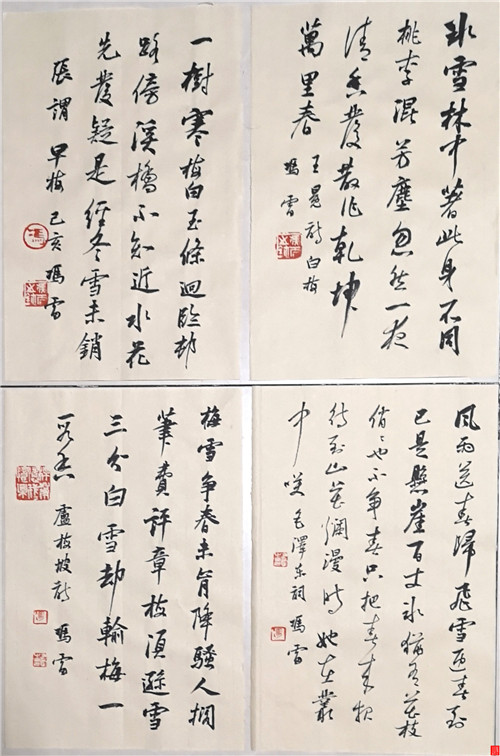 冰雪林中著此身不同
桃李混芳塵忽然一夜
清香發散作乾坤
萬里春 王冕詩白梅
一樹寒梅白玉條迥臨邨
路傍溪橋不知近水花
先發疑是經冬雪未銷
張謂 早梅 己亥
風雨送春歸飛雪迎春到
已是懸崖百丈冰猶有花枝
俏俏也不争春只把春來報
待到山花爛漫時她在叢
中笑 毛澤東詞
梅雪争春未肯降騷人擱
筆費評章梅須遜雪
三分白雪却輸梅一
段香 盧梅坡詩